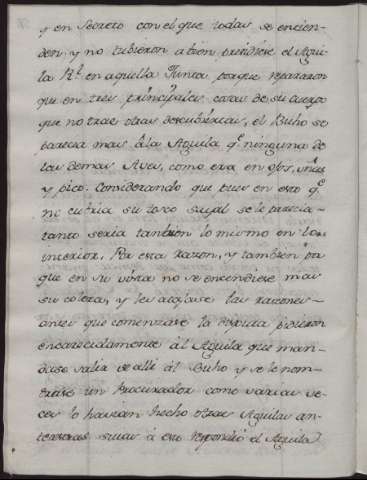 y en Secreto con el que todas se encien-
den, y no tubieron a bien presidiese el Agui-
la Rl. en aquella Junta porque repararon
que en tres principales cosas de su cuerpo
que no trae otras descubiertas, el Buho se
parecia mas â la Aguila qe. ninguna de
las demas Aves, como era en ojos, uñas
y pico. Considerando que pues en esto qe.
no cubria su tosco sayal se le parecia
tanto seria tambien lo mismo en lo
interior. Por esta razon, y tambien pa.
que en su vista no se encendiese mas
su colera, y les atajase las razones
antes que comenzase la disputa pidieron
encarecidamente al Aguila que man-
dase salir de alli âl Buho y se le nom-
brase un Procurador como varias ve-
ces lo havian hecho otras Aguilas an-
tecesoras suias â esto respondió el Aguila